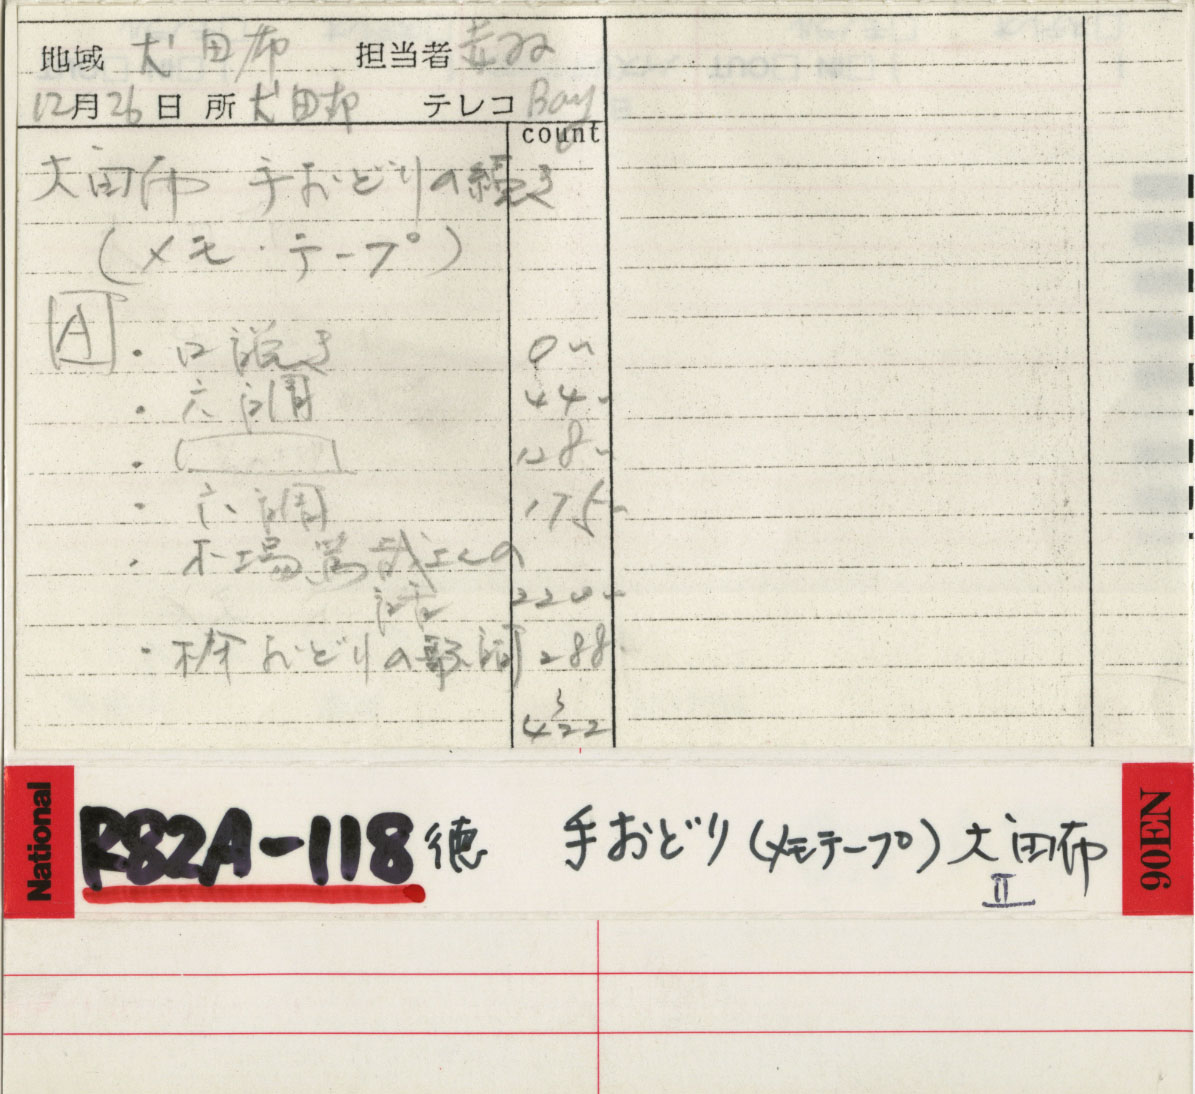 地域 犬田布 担当者 赤羽
12月26日 所 犬田布 テレコ Boy
count
犬田布 手おどりの続き
(メモ・テープ)
A
・口説き 0〜
・六調 44〜
・ 128〜
・六調 175〜
・木場篤哉さんの
話 220〜
・枠おどりの歌詞 288〜
422
National R82A-118 徳 手おどり(メモテープ)犬田布 90EN
II